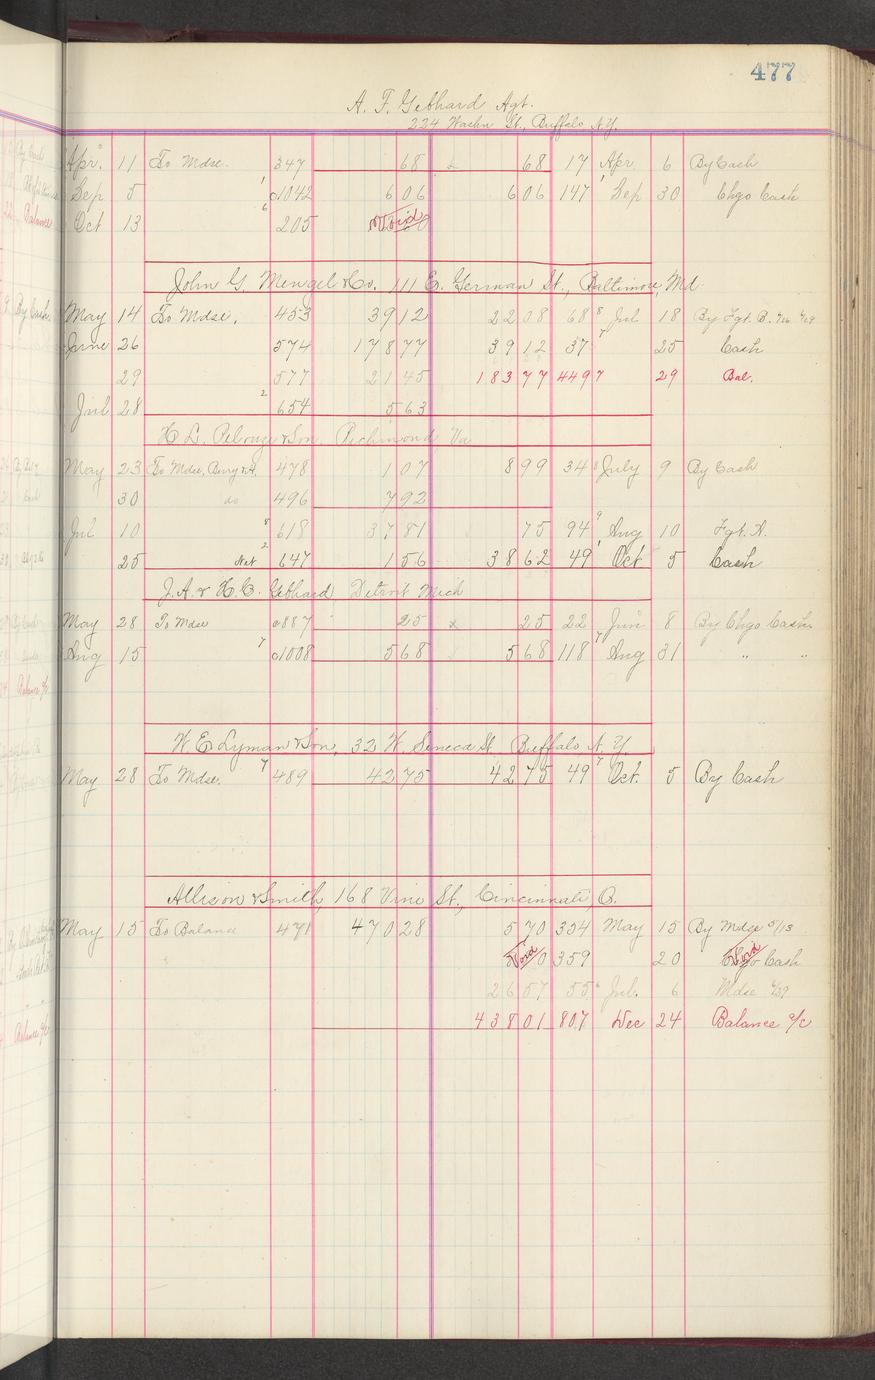 477
A. F. Gebhard Agt.
224 Washn St., Buffalo, N.Y.
Apr. 11 To Mdse. 347 68 68 17 Apr. 6 By Cash
Sep 5 1042 6 06 6 06 147 Sep 30 Chgo Cash
Oct 13 205 Void
John G. Mengel & Co. 111 E. German St., Baltimore, Md.
May 14 To Mdse. 453 39 12 22 08 68 Jul 18 By Fgt. B.
June 26 574 178 77 39 12 37 25 Cash
29 577 21 45 183 77 449 29 Bal.
Jul 28 654 5 63
H. L. Pelouze & Son, Richmond, Va
May 23 To Mdse, 478 1 07 8 99 34 July 9 By Cash
30 do 496 7 92
Jul 10 618 37 81 75 94 Aug 10 Fgt. A.
25 Net 647 1 56 38 62 49 Oct 5 Cash
J. A. & H. C. Gebhard Detroit Mich
May 28 To Mdse 887 25 25 22 Jun 8 By Chgo Cash
Aug 15 1008 5 68 5 68 118 Aug 31 " "
W. E. Lyman & Son, 32 W. Seneca St. Buffalo N. Y.
May 28 To Mdse. 489 42 75 42 75 49 Oct. 5 By Cash
Allison & Smith, 168 Vine St., Cincinnati O.
May 15 To Balance 471 470 28 5 70 354 May 15 By Mdse 5/13
Void 359 20 Void Chgo Cash
26 57 55 Jul. 6 Mdse
438 01 807 Dec 24 Balance a/c